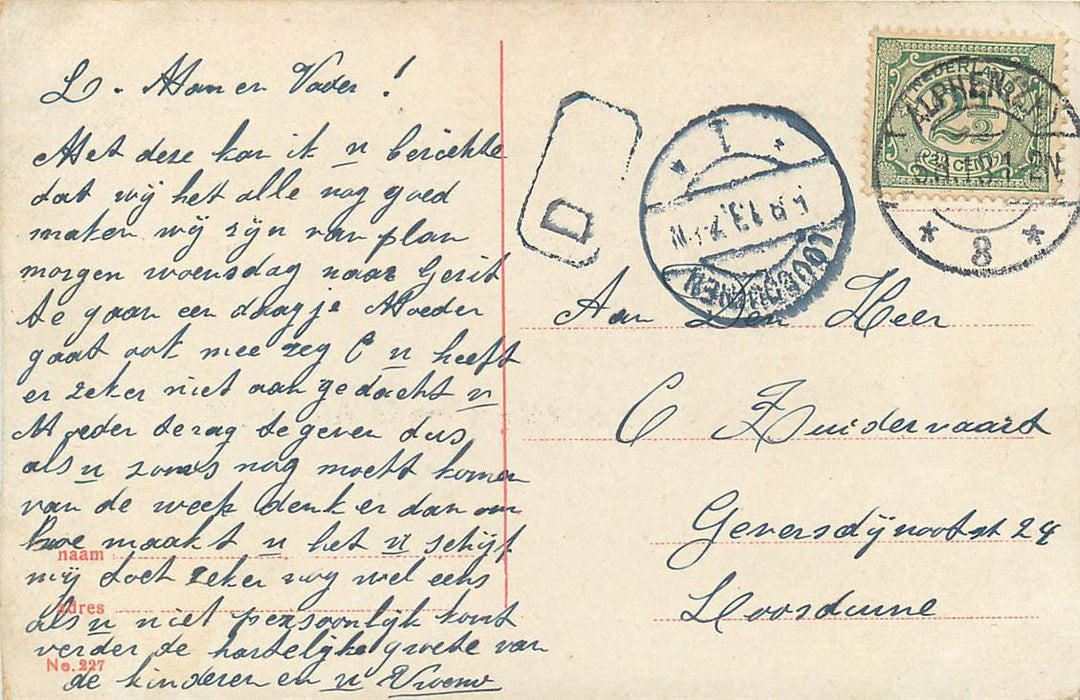 L. Man en Vader!
Met deze kan ik u berichte
dat wij het alle nog goed
maken wij zijn van plan
morgen woensdag naar Gerit
te gaan een daagje Moeder
gaat ook mee zeg C u heeft
er zeker niet aan gedacht u
Moeder terug te geven dus
als u zoms nog moett komen
van de week denk er dan om
hoe maakt u het u schijf
mij doch zeker nog wel eens
als u niet persoonlijk komt
verder de hartelijke groete van
de kinderen en u Vrouw
naam
adres
No. 227
D
LOOSDUINEN
1
NEDERLAND
2½
CENT
ALPHEN
2N
8
Aan Den Heer
C Zuidervaart
Geversdijnootst 24
Loosduine